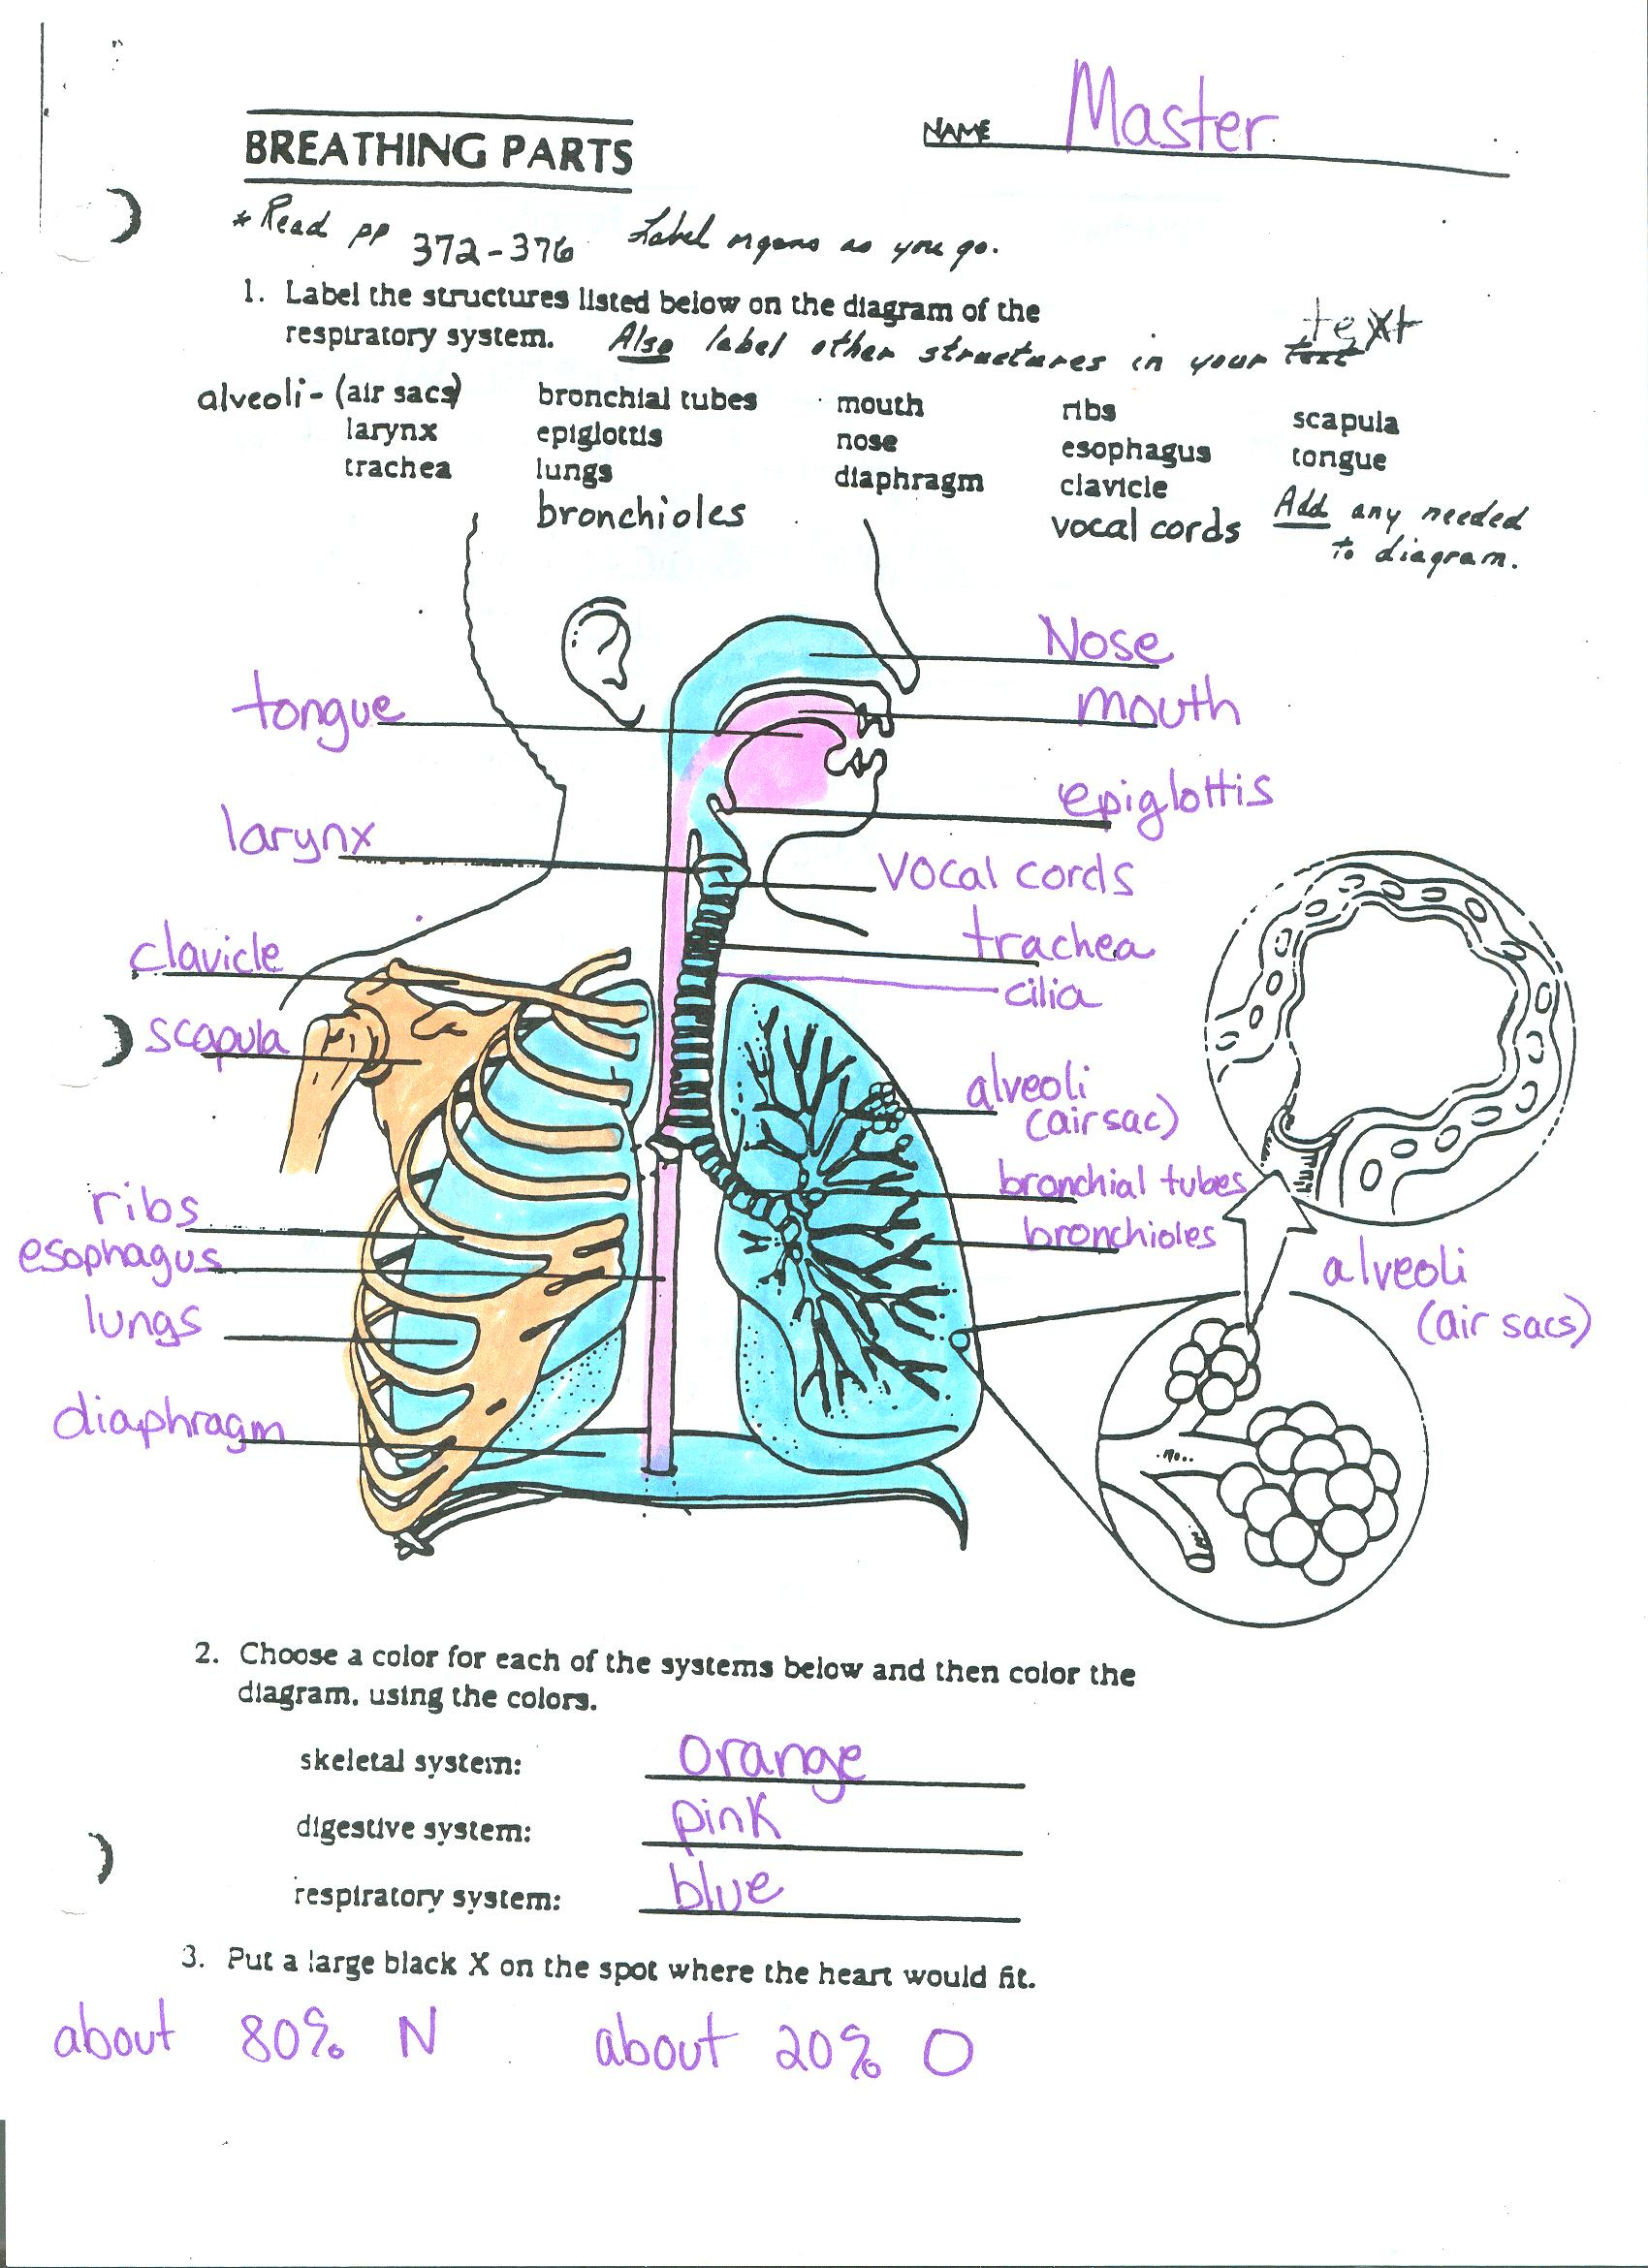 NAME Master
BREATHING PARTS
* Read pp 372-376 Label organs as you go.
1. Label the structures listed below on the diagram of the
respiratory system. Also label other structures in your text text
alveoli- (air sacs) bronchial tubes mouth ribs scapula
larynx epiglottis nose esophagus tongue
trachea lungs diaphragm clavicle Add any needed
bronchioles vocal cords to diagram.
Nose
tongue mouth
epiglottis
larynx vocal cords
clavicle trachea
cilia
scapula
alveoli
(air sac)
bronchial tubes
ribs bronchioles
esophagus alveoli
lungs (air sacs)
diaphragm
2. Choose a color for each of the systems below and then color the
diagram. using the colors.
skeletal system: orange
digestive system: pink
respiratory system: blue
3. Put a large black X on the spot where the heart would fit.
about 80% N about 20% O